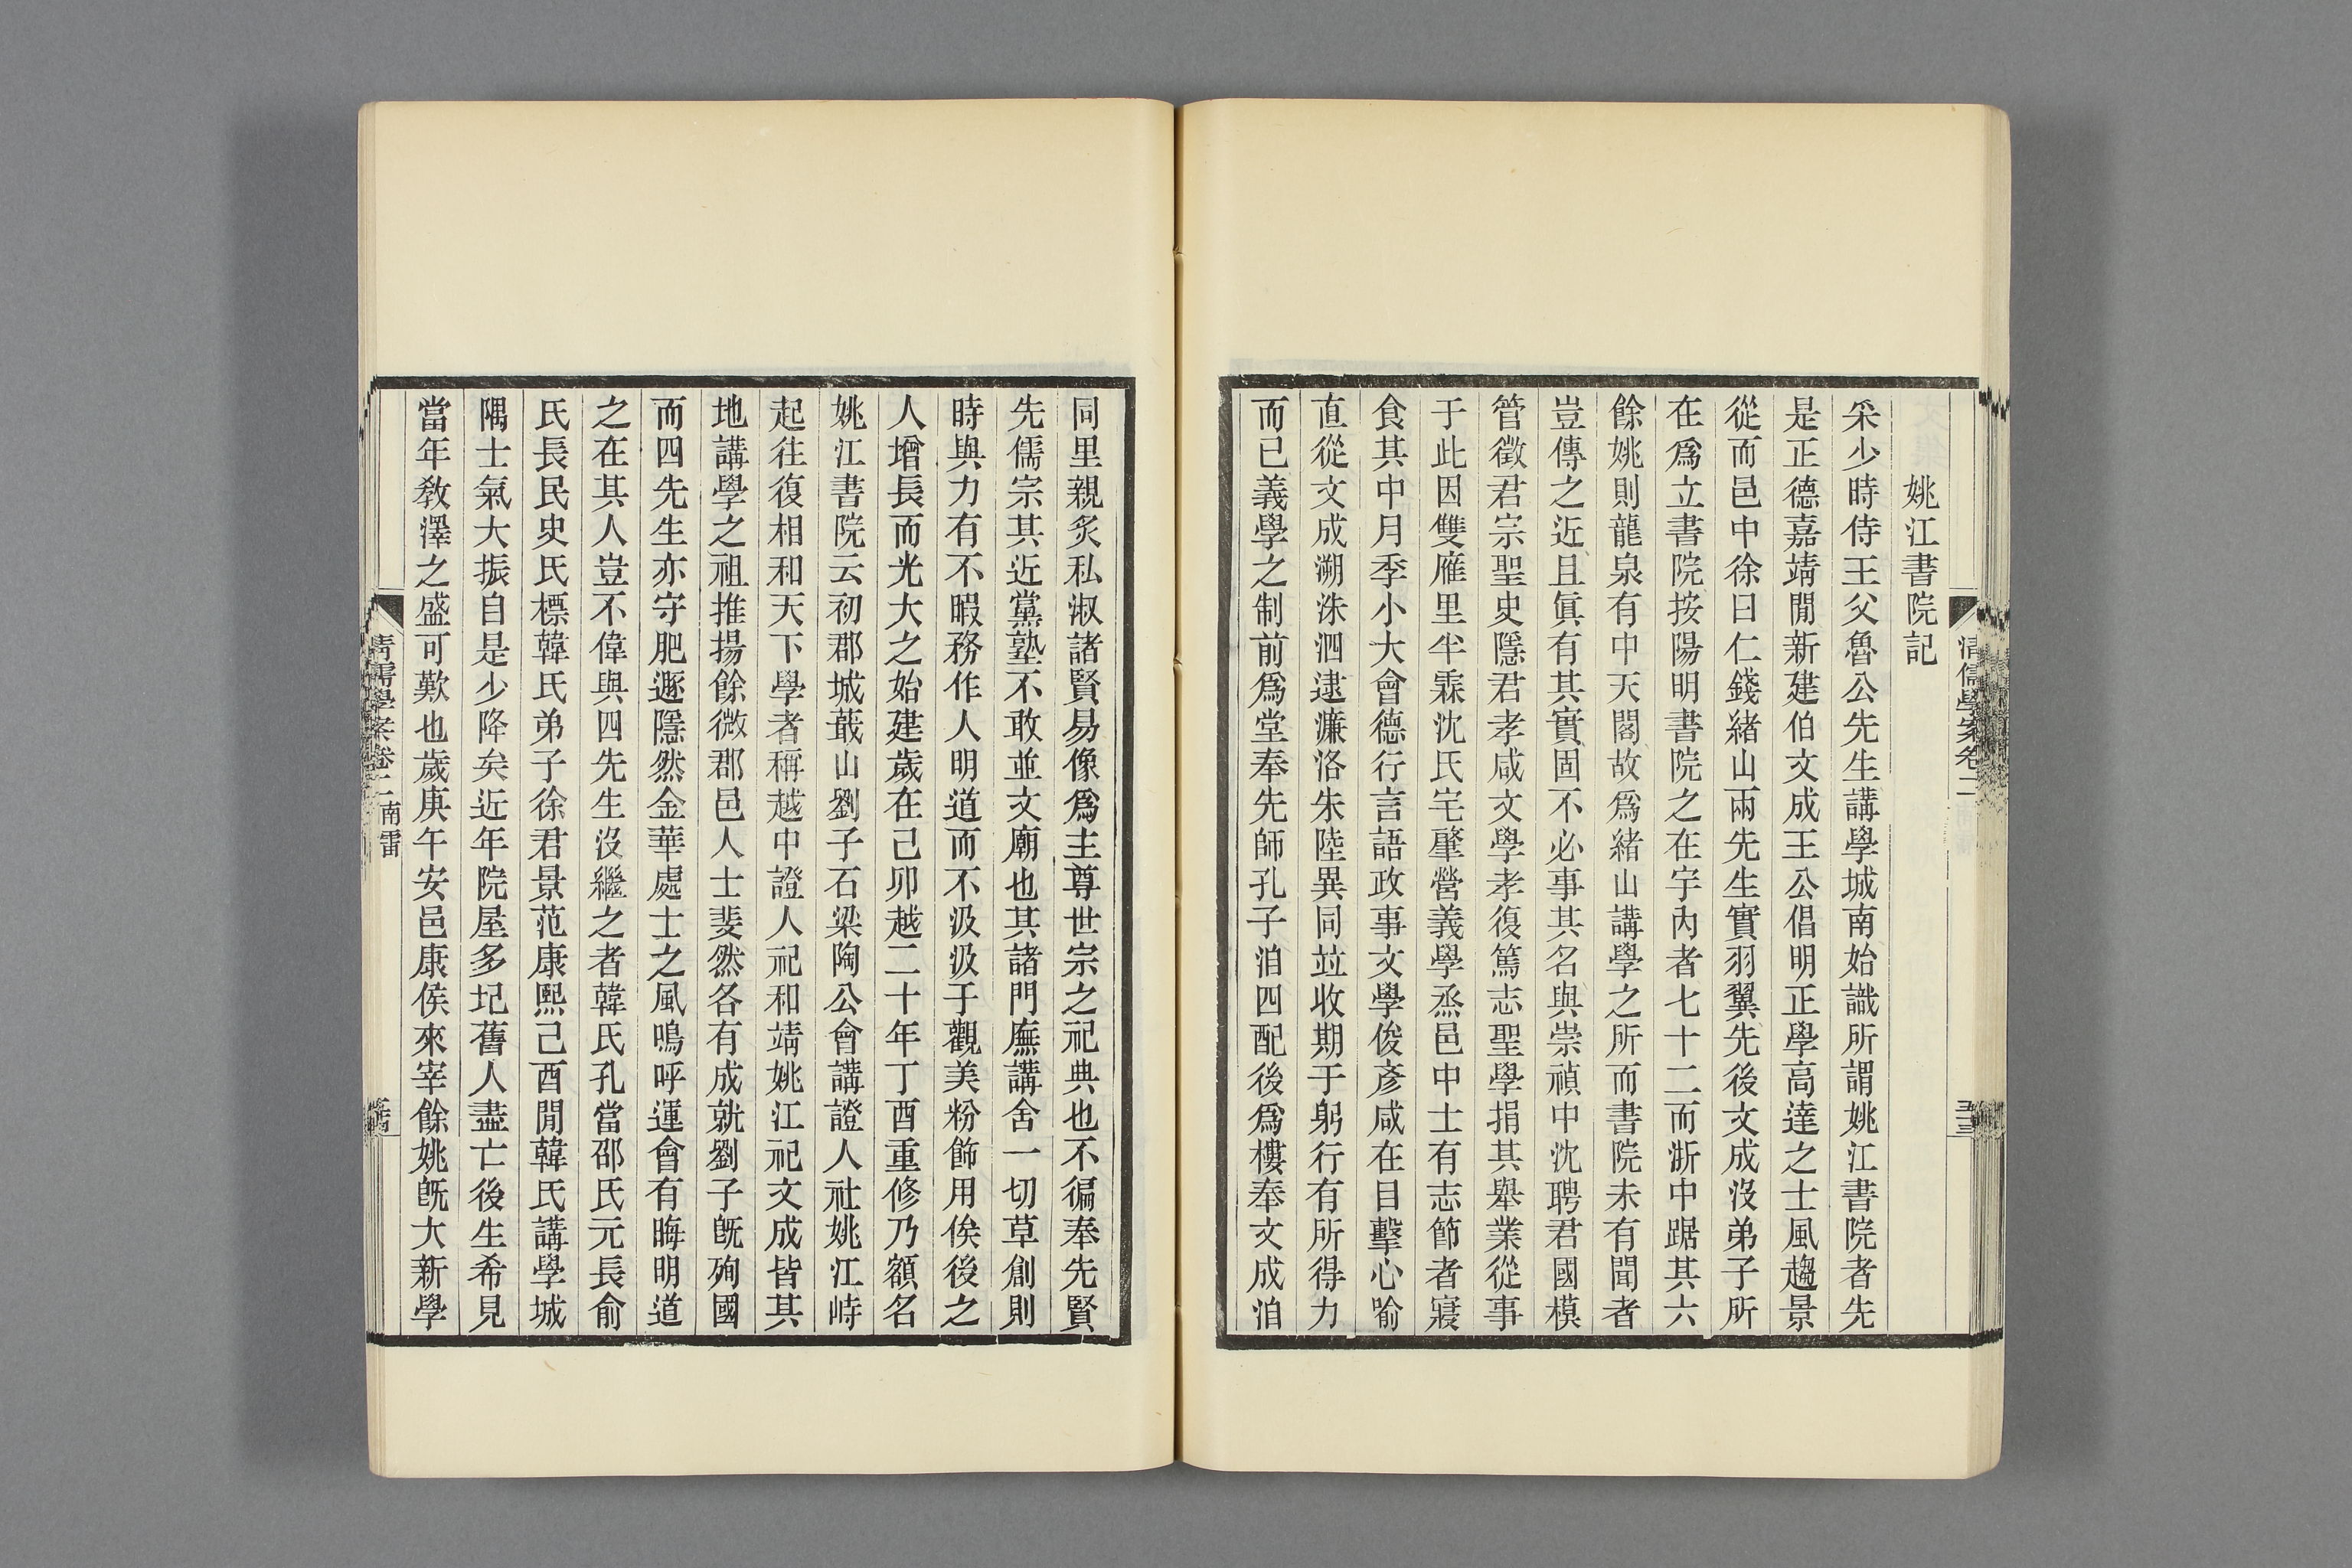 姚江書院記
采少時侍王父魯公先生講學城南始識所謂姚江書院者先
是正德嘉靖閒新建伯文成王公倡明正學高達之士風趨景
從而邑中徐曰仁錢緒山兩先生實羽翼先後文成沒弟子所
在爲立書院按陽明書院之在宇內者七十二而浙中踞其六
餘姚則龍泉有中天閣故爲緒山講學之所而書院未有聞者
豈傳之近且眞有其實固不必事其名與崇禎中沈聘君國模
管徵君宗聖史隱君孝咸文學孝復篤志聖學捐其舉業從事
于此因雙雁里半霖沈氏宅肇營義學烝邑中士有志節者寢
食其中月季小大會德行言語政事文學俊彥咸在目擊心喻
直從文成溯洙泗逮濂洛朱陸異同竝收期于躬行有所得力
而已義學之制前爲堂奉先師孔子洎四配後爲樓奉文成洎
清儒學案卷二
同里親炙私淑諸賢易像爲主尊世宗之祀典也不徧奉先賢
先儒宗其近黨塾不敢並文廟也其諸門廡講舍一切草創則
時與力有不暇務作人明道而不汲汲于觀美粉飾用俟後之
人增長而光大之始建歲在己卯越二十年丁酉重修乃額名
姚江書院云初郡城蕺山劉子石梁陶公會講證人社姚江峙
起往復相和天下學者稱越中證人祀和靖姚江祀文成皆其
地講學之祖推揚餘微郡邑人士斐然各有成就劉子旣殉國
而四先生亦守肥遯隱然金華處士之風嗚呼運會有晦明道
之在其人豈不偉與四先生沒繼之者韓氏孔當邵氏元長俞
氏長民史氏標韓氏弟子徐君景范康熙己酉閒韓氏講學城
隅士氣大振自是少降矣近年院屋多圮舊人盡亡後生希見
當年敎澤之盛可歎也歲庚午安邑康侯來宰餘姚旣大新學
清儒學案卷二 南雷